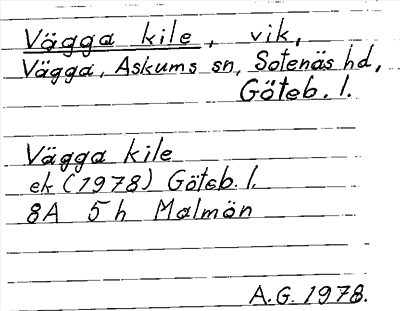 Vägga kile, vik,
Vägga, Askums sn, Sotenäs hd,
Göteb. l.
Vägga kile
ek (1978) Göteb. l.
8A 5h Malmön
A.G. 1978.